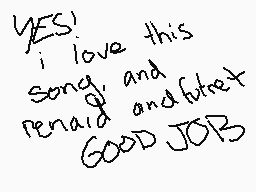 YES!
i love this
song, and
renaid and futret
GOOD JOB